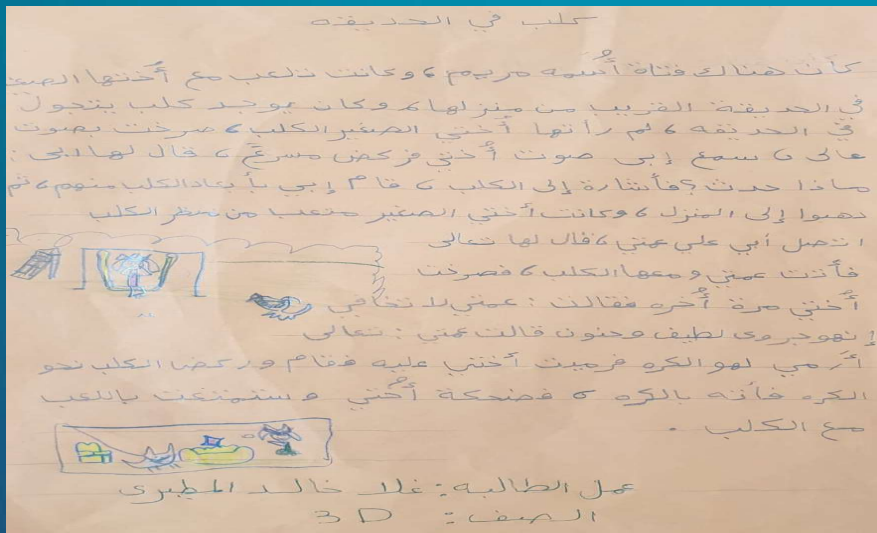 كلب في الحديقه
كان هناك فتاة أسمه مريم، وكانت تلعب مع أختها الصغير
في الحديقة القريب من منزلها، وكان يوجد كلب يتجول
في الحديقه، لم رأتها أختي الصغير الكلب، صرخت بصوت
عالى، سمع إبى صوت أختي فركض مسرع، قال لها ابى :
ماذا حدث؟ فأشارة إلى الكلب، قام إبي بأبعاد الكلب منهم، ثم
دهبوا إلى المنزل، وكانت أختي الصغير متعب من الكلب
اتصل أبي علي عمتي، فقال لها تعالى
فأتت عمتي ومعها الكلب، فصرخت
أختي مرة أخره فقالت : عمتي لا تخافي
إنهو جروى لطيف وحنون قالت عمتي : تعالى
أرمي لهو الكره فرميت أختي عليه فقام وركض الكلب نحو
الكره فأته بالكره، فضحكة أختي وستمتعت باللعب
مع الكلب .
عمل الطالبه : غلا خالد المطيرى
الصف : 3D